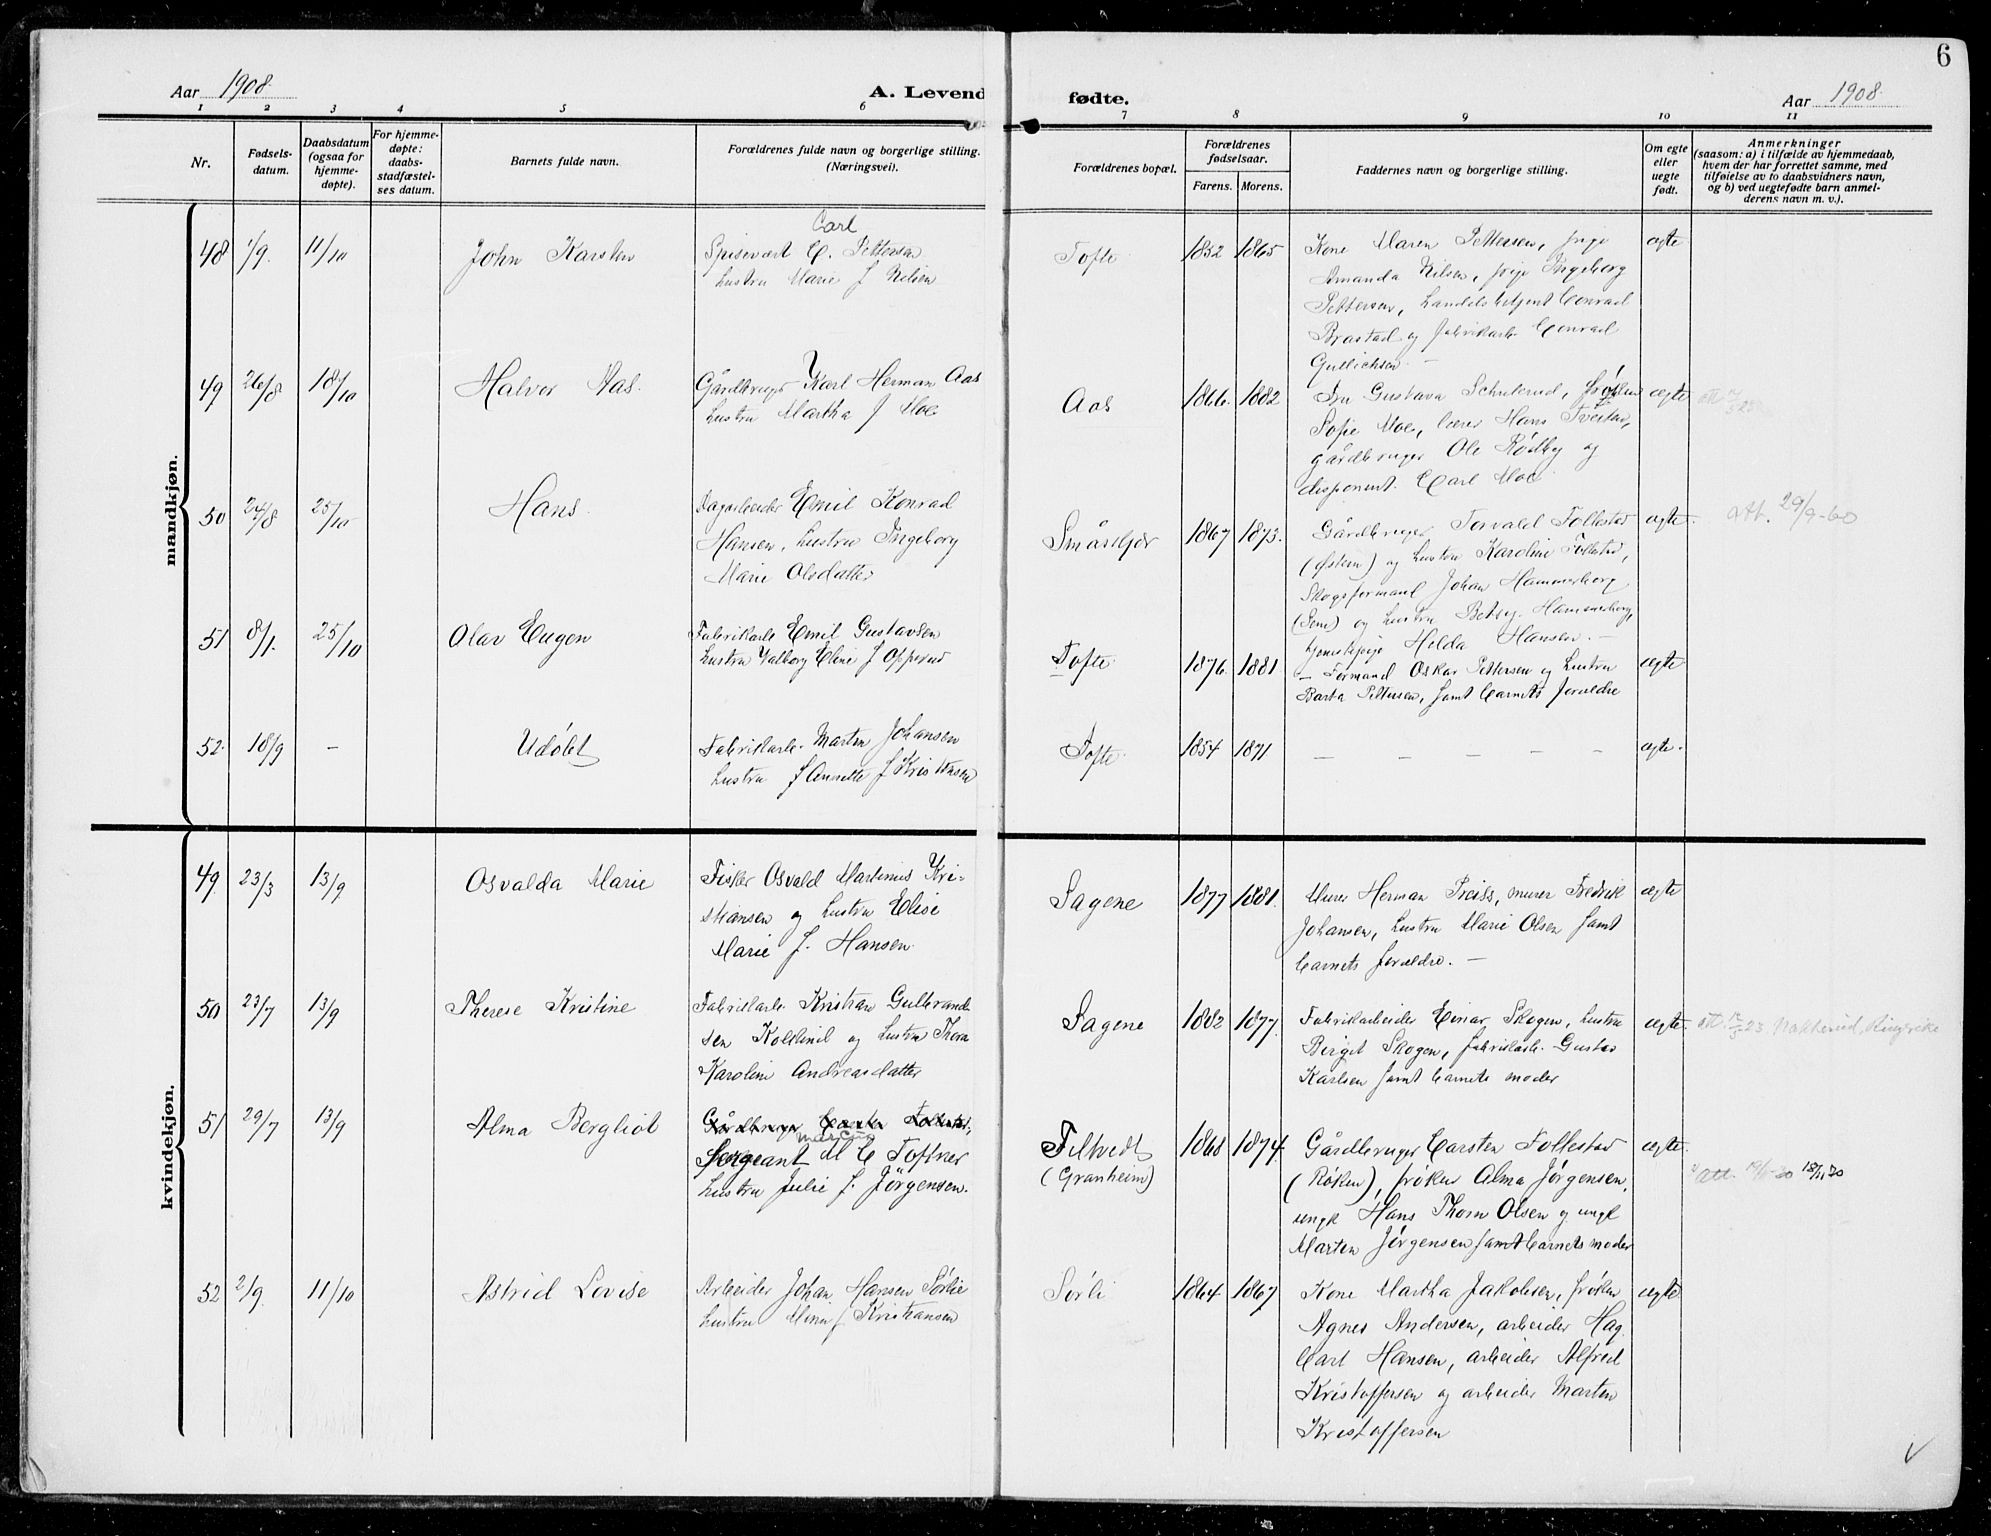 6
Aar 1908.
A. Levend
fødte.
Aar 1908.
1 2 3 4 5 6 7 8 9 10 11
Nr.
Fødsels-
datum.
Daabsdatum
(ogsaa for
hjemme-
døpte).
For hjemme-
døpte:
daabs-
stadfæstel-
ses datum.
Barnets fulde navn.
Forældrenes fulde navn og borgerlige stilling.
(Næringsvei).
Forældrenes bopæl.
Forældrenes
fødselsaar.
Farens. Morens.
Faddernes navn og borgerlige stilling.
Om egte
eller
uegte
født.
Anmerkninger
(saasom: a) i tilfælde av hjemmedaab,
hvem der har forrettet samme, med
tilføielse av to daabsvidners navn,
og b) ved uegtefødte barn anmel-
derens navn m. v.).
mandkjøn.
48 1/9. 11/10 John Karsten
Carl
Spisevært C. Pettersen
hustru Marie f Nilsen
Tofte 1852 1865
Kone Maren Pettersen, pige
Amanda Nilsen, pige Ingeborg
Pettersen, handelsbetjent Conrad
Brastad og fabrikarb. Conrad
Gullichsen. –
egte
49 26/8 18/10 Halvor Aas.
Gårdbruger Karl Herman Aas
hustru Martha f Moe
Aas 1866. 1882
Fru Gustava Schulerud, frøken
Sofie Moe, lærer Hans Tveiten,
gårdbruger Ole Rødby og
disponent. Carl Moe
egte
50 24/8 25/10 Hans
Dagarbeider Emil Konrad
Hansen, hustru Ingeborg
Marie Olsdatter
Småskjær 1867 1873.
Gårdbruger Torvald Tollestad
(Østern) og hustru Karoline Follestad,
Skogsformand Johan Hammerborg
(Sem) og hustru Betsy Hammerborg,
tjenestepige Hilda Hansen. –
egte. att. 29/9-60
51 8/1. 25/10 Olav Eugen
Fabrikarb Emil Gustavsen
hustru Valborg Eline f Oppsud
Tofte 1876. 1881
– Formand Oskar Pettersen og hustru
Barta Pettersen, samt barnets forældre
egte
52. 18/9 – Udøbt
Fabrikarb. Martin Johansen
hustru f Annette f Kristensen
Tofte 1854 1871 – – – – – egte.
kvindekjøn.
49. 23/3 13/9. Osvalda Marie
Fisker Osvald Martinus Kri-
stiansen og hustru Elise
Marie f. Hansen
Sagene 1877 1881.
Murer Herman Preiss, murer Fredrik
Johansen, hustru Marie Olsen samt
barnets forældre. –
egte
50 23/7 13/9 Therese Kristine
Fabrikarb. Kristian Gulbrand
sen Kolkinil og hustru Thora
Karoline Andreasdatter
Sagene 1882 1877.
Fabrikarbeider Einar Skogen, hustru
Birgit Skogen, fabrikarb. Gustav
Karlsen samt barnets moder
egte. att. 12/5 23 Nakkerud, Ringerike
51 29/7 13/9 Alma Bergliot
Gårdbruger Carsten Follestad,
Marcus
Sergeant M C Toftner
hustru Julie f. Jörgensen.
Filtvedt
(Granheim)
1868 1874.
Gårdbruger Carsten Follestad
(Røken), frøken Alma Jørgensen,
ungk Hans Thorn Olsen og ungk
Marten Jørgensen samt barnets moder
egte.
52 2/9. 11/10 Astrid Lovise
Arbeider Johan Hansen Sørlie
hustru Mina f Kristiansen
Sørli 1864 1867
Kone Martha Jakobsen, frøken
Agnes Andersen, arbeider Hag.
bart Hansen, arbeider Alfred
Kristoffersen og arbeider Marten
Kristoffersen
egte